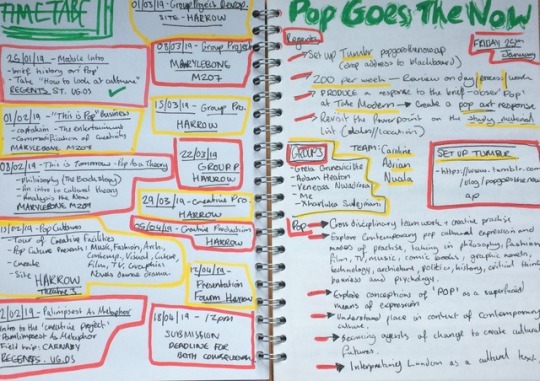 TIMETABLE
25/01/19 - Module Intro
- brief history on 'Pop'
- Take "How to look at culture"
REGENTS ST. UG.05
01/02/19 - "This is Pop" Business
- capitalism - The entertainment
- Commodification of Creatives
MARYLEBONE M207
08/02/19 - This is Tomorrow - Pop As Theory
- Philosophy
- An intro to Cultural Theory
- Analysis the Now
MARYLEBONE M207
15/02/19 - Pop Cultures
- Tour of Creative Facilities
- Pop Culture Presents: Music, Fashion, Arch,
Contemp, Visual, Culture,
Film, TV, Graphics
- Create
News Game Drama.
- Site
HARROW
22/02/19 - Palimpsest As Metaphor
Intro to the 'creative project'
Palimpsest As Metaphor
Field trip: CARNABY
REGENTS. UG.05
01/03/19 - Group Project Develop.
SITE - HARROW
08/03/19 - Group Project
MARYLEBONE
M207
15/03/19 - Group Pro.
HARROW
22/03/19
GROUP P
HARROW
29/03/19 - Creative Pro.
HARROW
05/04/19 - Creative Production
HARROW
12/04/19 -
Presentation
Forum Harrow
18/04/19 - 12pm
SUBMISSION
DEADLINE FOR
BOTH COURSEWORK
Pop Goes The Now
Regents
FRIDAY 25th
January
Set up Tumblr popgoesthenowap
(cmp address to blackboard)
200 per week - Review on day/process/work
PRODUCE a response to the brief -
at Tate Modern - Create a pop art response
Revisit the Powerpoint on the study material
list
GROUPS
TEAM: Caroline
Adrian
Nuala
- Adam Heaton
- Vanessa
- Me
- Khortula Suleyman
SET UP TUMBLR
- https://www.tumblr.com
/blog/popgoesthenow
ap
Pop
Cross disciplinary team work + creative practise
Explore Contemporary pop cultural expression and
modes of practise, taking in philosophy, fashion,
film, TV, music, comic books, graphic novels,
technology, architecture, politics, history, critical thinking
business and psychology.
Explore conceptions of 'POP' as a superficial
means of expression
Understand place in context of Contemporary
culture.
Becoming agents of change to create cultural
futures.
Interpreting London as a cultural text.